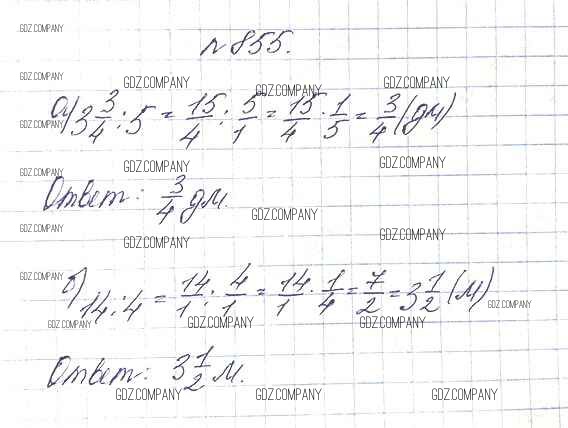 GDZ.COMPANY
№855.
GDZ.COMPANY
GDZ.COMPANY GDZ.COMPANY GDZ.COMPANY
а) 3 3/4 : 5 = 15/4 : 5/1 = 15/4 · 1/5 = 3/4 (дм)
GDZ.COMPANY
GDZ.COMPANY GDZ.COMPANY
GDZ.COMPANY
Ответ: 3/4 дм.
GDZ.COMPANY
GDZ.COMPANY GDZ.COMPANY GDZ.COMPANY
GDZ.COMPANY
б) 14 : 4 = 14/1 : 4/1 = 14/1 · 1/4 = 7/2 = 3 1/2 (м)
GDZ.COMPANY
GDZ.COMPANY GDZ.COMPANY GDZ.COMPANY
Ответ: 3 1/2 м.
GDZ.COMPANY GDZ.COMPANY GDZ.COMPANY